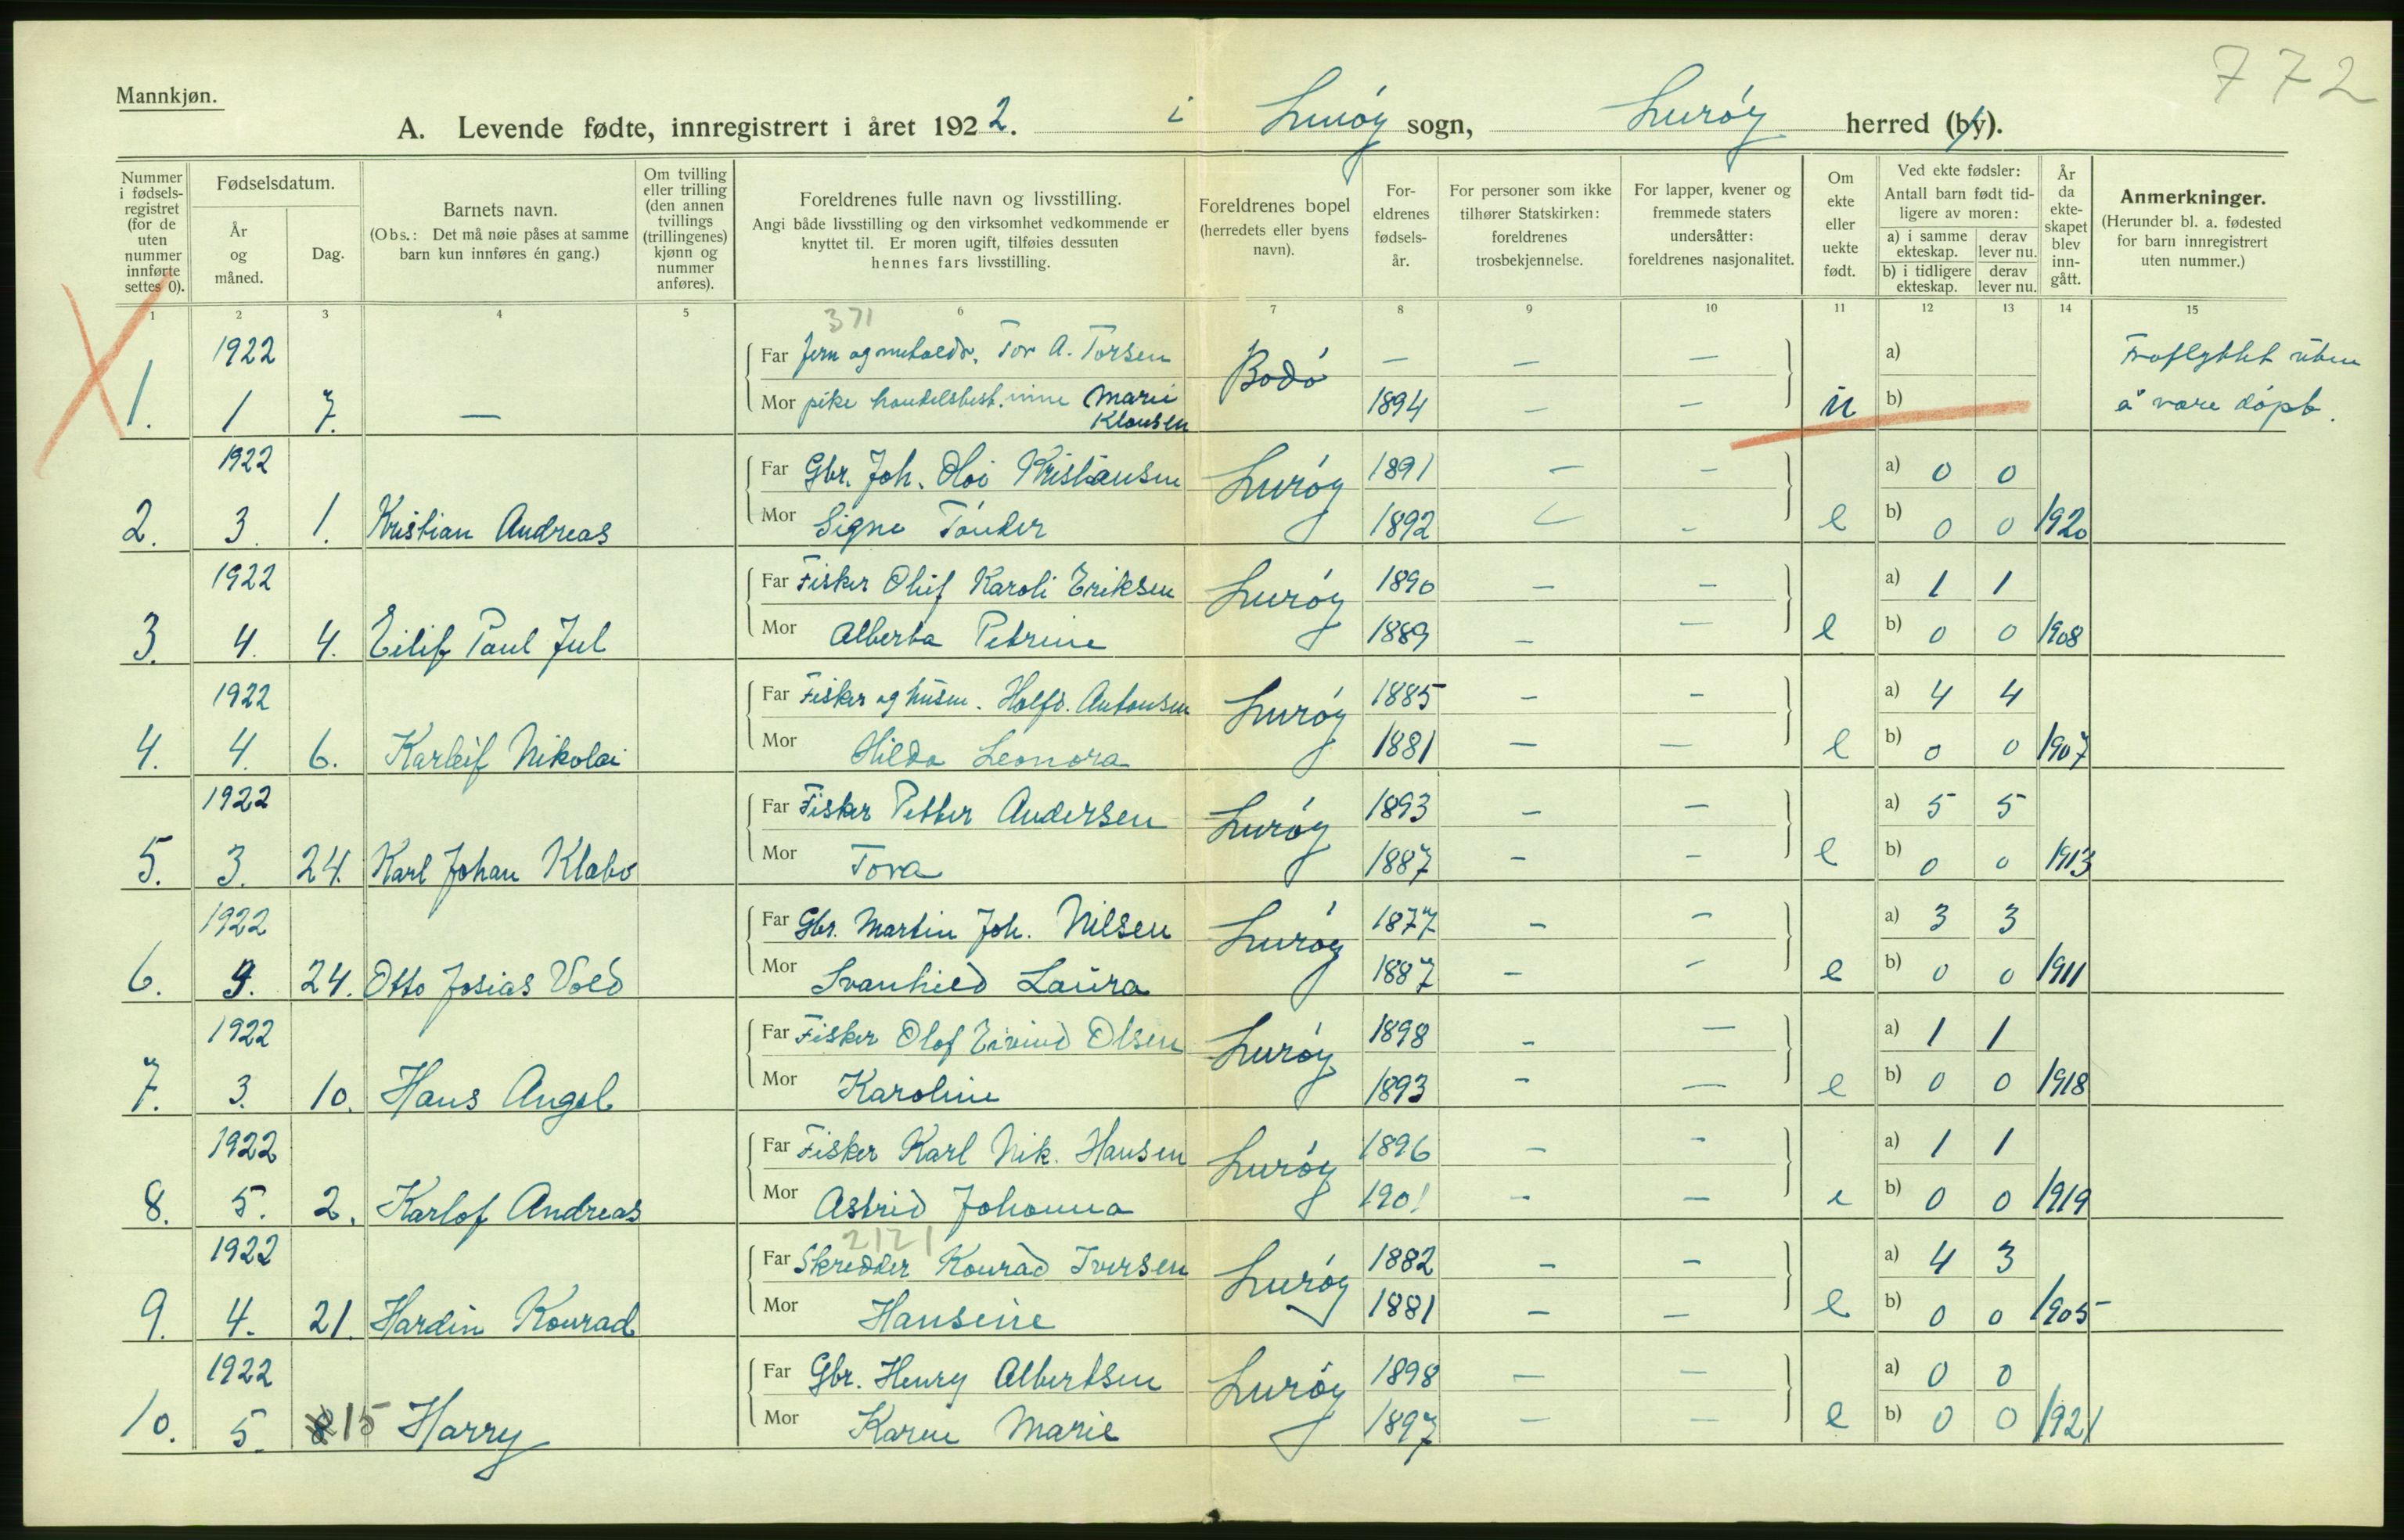 772
Mannkjøn.
A. Levende fødte, innregistrert i året 1922. i Lurøy sogn, Lurøy herred (by).
Nummer i fødsels-registret (for de uten nummer innførte settes 0).
Fødselsdatum.
År og måned.
Dag.
Barnets navn.
(Obs.: Det må nøie påses at samme barn kun innføres én gang.)
Om tvilling eller trilling (den annen tvillings (trillingenes) kjønn og nummer anføres).
Foreldrenes fulle navn og livsstilling.
Angi både livsstilling og den virksomhet vedkommende er knyttet til. Er moren ugift, tilføies dessuten hennes fars livsstilling.
Foreldrenes bopel (herredets eller byens navn).
For-eldrenes fødsels-år.
For personer som ikke tilhører Statskirken: foreldrenes trosbekjennelse.
For lapper, kvener og fremmede staters undersåtter: foreldrenes nasjonalitet.
Om ekte eller uekte født.
Ved ekte fødsler:
Antall barn født tid-ligere av moren:
a) i samme ekteskap. derav lever nu.
b) i tidligere ekteskap. derav lever nu.
År da ekte-skapet blev inn-gått.
Anmerkninger.
(Herunder bl. a. fødested for barn innregistrert uten nummer.)
1 2 3 4 5 6 7 8 9 10 11 12 13 14 15
371
1922 Far Tor A. Torsen Bodø — — — a) Fraflyttet uten
1. 1 7. — Mor pike Marie Klausen 1894 — — u b) å være døpt.
1922 Far Gbr. Joh. Kristiansen Lurøy 1891 — — a) 0 0
2. 3. 1. Kristian Andreas Mor Signe Tønder 1892 — e b) 0 0 1920
1922 Far Fisker Oluf Karoli Eriksen Lurøy 1890 — — a) 1 1
3. 4. 4. Eilif Paul Jul Mor Alberta Petrine 1889 — — e b) 0 0 1908
1922 Far Fisker og husm. Halfd. Antonsen Lurøy 1885 — — a) 4 4
4. 4. 6. Karleif Nikolai Mor Hilda Leonora 1881 — — e b) 0 0 1907
1922 Far Fisker Petter Andersen Lurøy 1893 — — a) 5 5
5. 3. 24. Karl Johan Klabo Mor Tora 1887 — — e b) 0 0 1913
1922 Far Gbr. Martin Joh. Nilsen Lurøy 1877 — — a) 3 3
6. 24. Otto Josias Vold Mor Svanhild Laura 1887 — — e b) 0 0 1911
1922 Far Fisker Olof Eivind Olsen Lurøy 1898 — — a) 1 1
7. 3. 10. Hans Angel Mor Karoline 1893 — — e b) 0 0 1918
1922 Far Fisker Karl Nik. Hansen Lurøy 1896 — — a) 1 1
8. 5. 2. Karlof Andreas Mor Astrid Johanna 1901 — — e b) 0 0 1919
2121
1922 Far Skredder Konrad Iversen Lurøy 1882 — — a) 4 3
9. 4. 21. Hardin Konrad Mor Hansine 1881 — — e b) 0 0 1905
1922 Far Gbr. Henry Albertsen Lurøy 1898 — — a) 0 0
10. 5. 15 Harry Mor Karen Marie 1897 — — e b) 0 0 1921